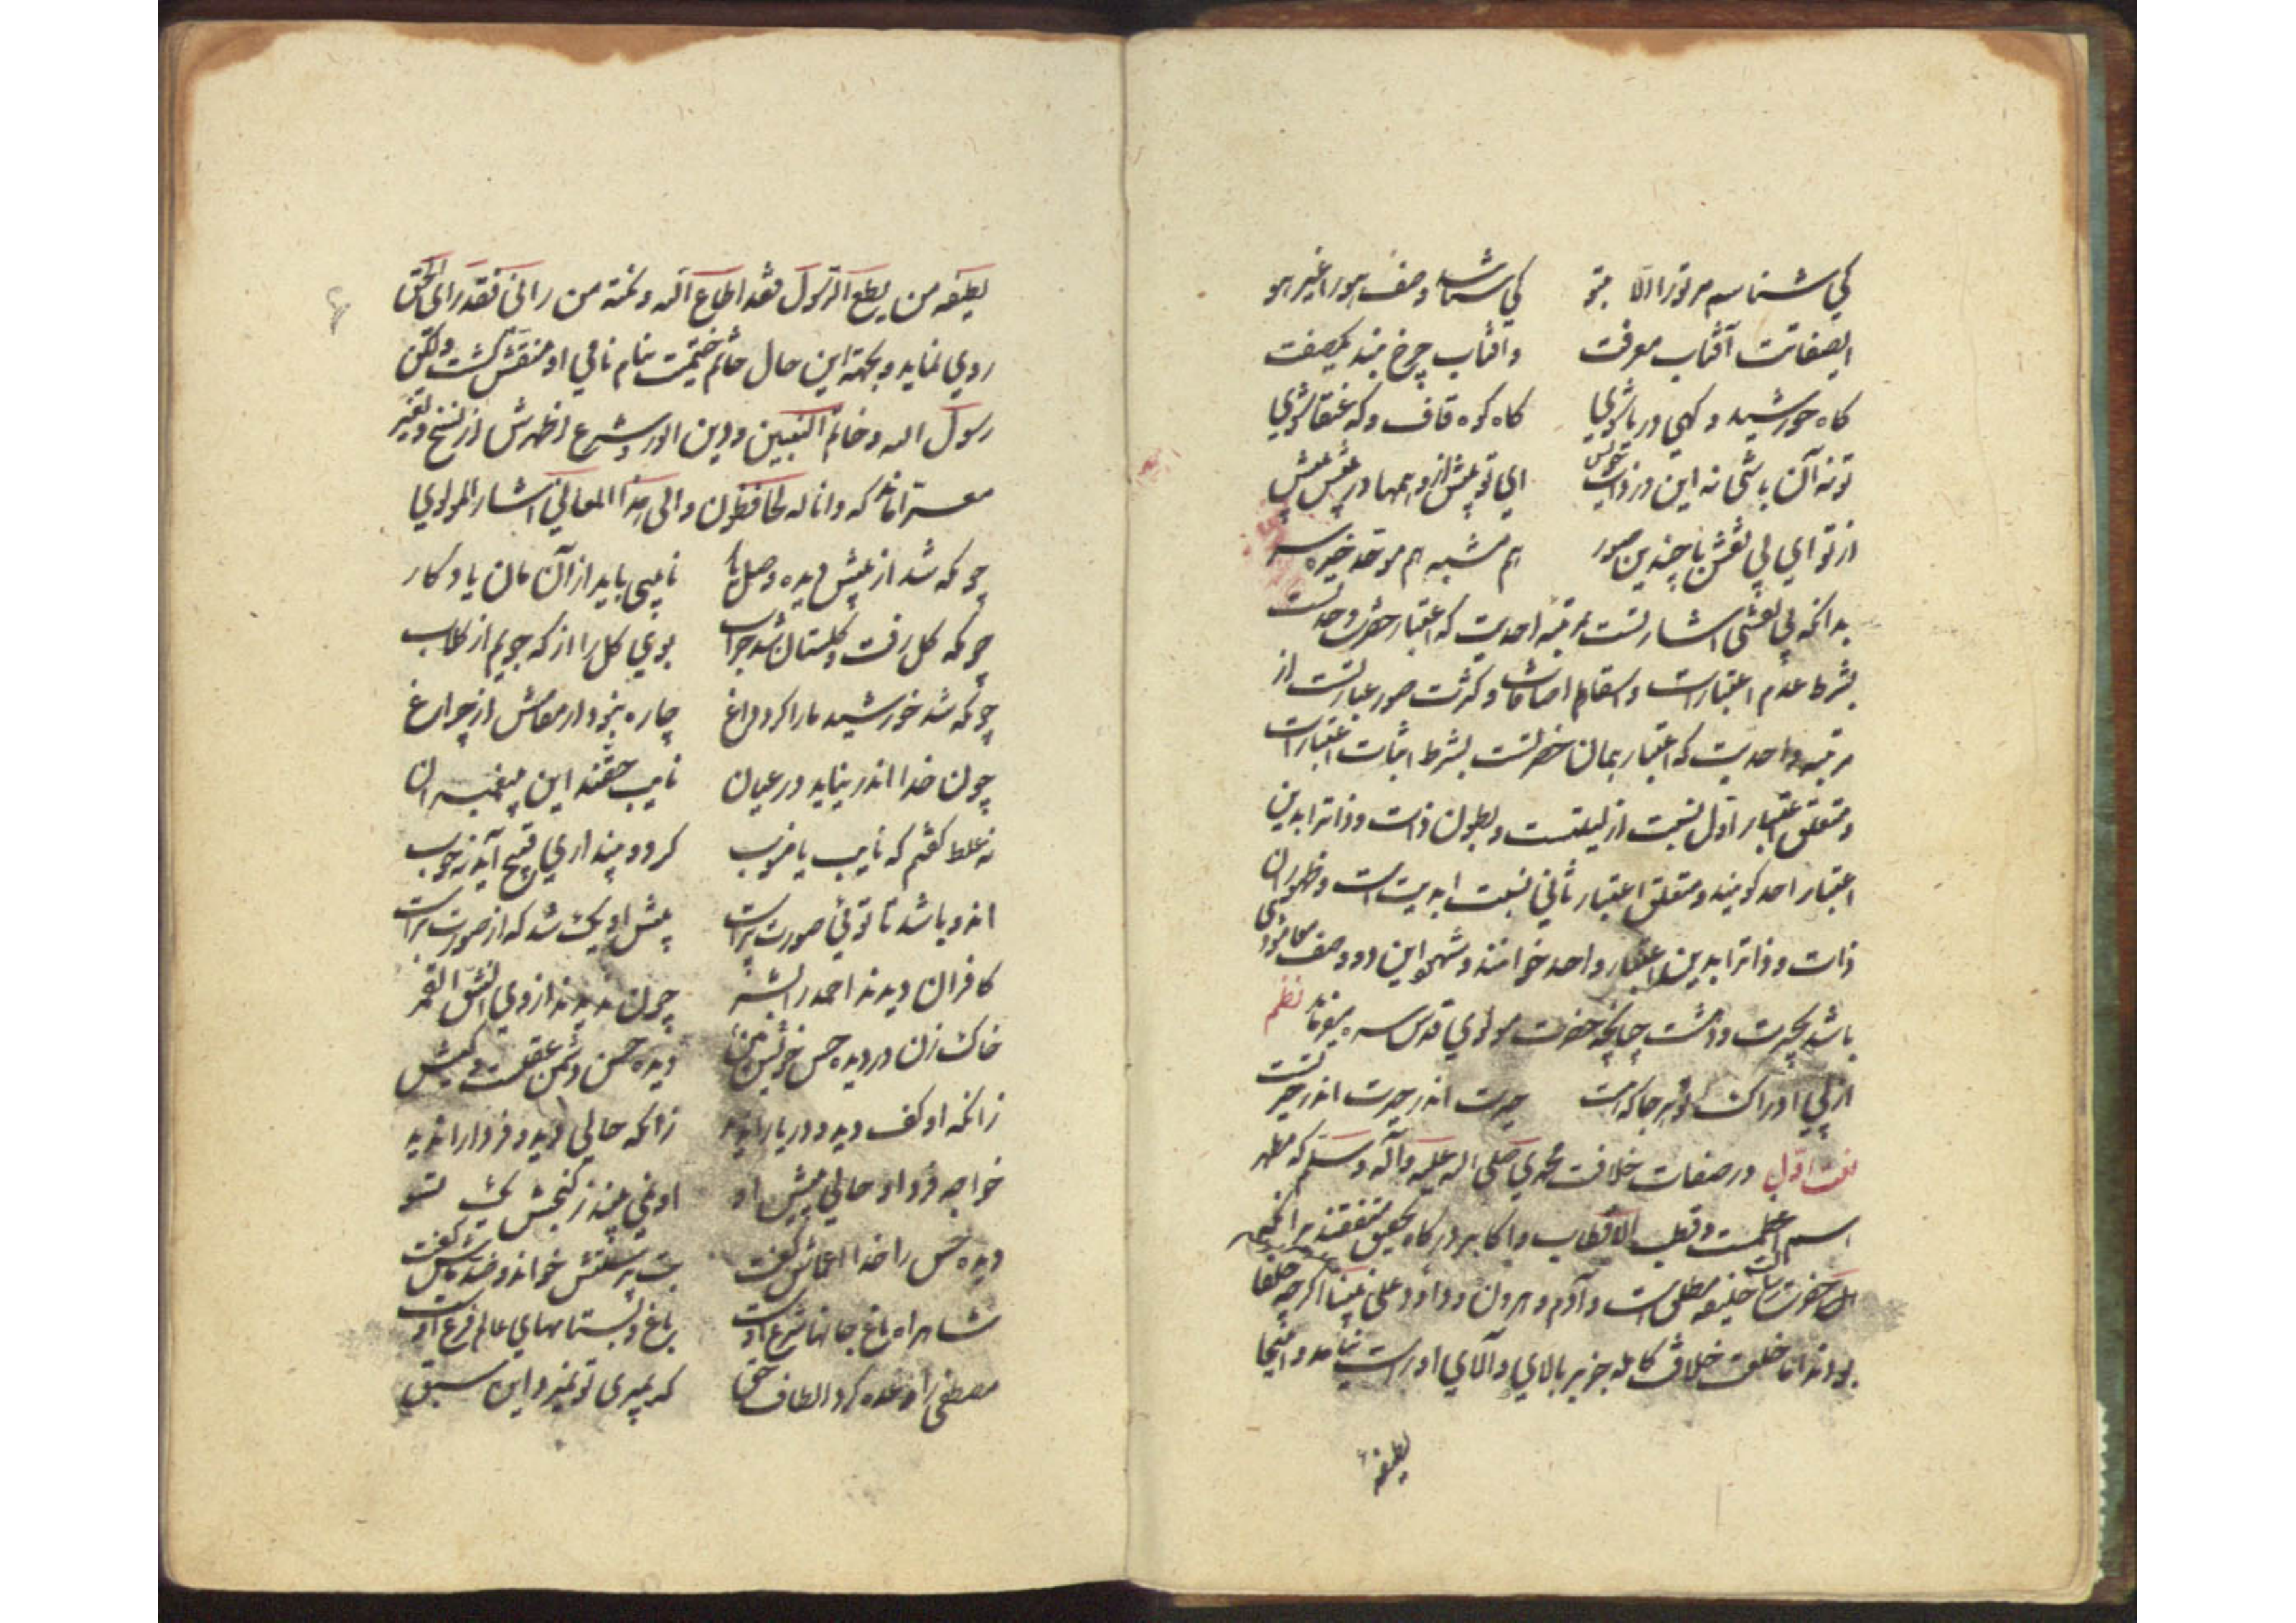 کی شناسم مر ترا الا بتو کی شناسد وصف هو را غیر هو
ای صفاتت آفتاب معرفت و آفتاب چرخ بند یکصفت
کاه خورشید و کهی دریا شوی کاه کوه قاف و که عنقا شوی
تو نه آن باشی نه این در ذات خویش ای تو بیش از وهمها در بیش بیش
از تو ای بی نقش با چندین صور هم مشبه هم موحد خیره سر
بدانکه بی نقشی اشارتست بمرتبه احدیت که اعتبار حضرت وحدتست
بشرط عدم اعتبارات و اسقاط اضافات و کثرت صور عبارتست از
مرتبه واحدیت که اعتبار همان حضرتست بشرط اثبات اعتبارات
و متعلق اعتبار اول نسبت ازلیتست و بطون ذات و ذاترا بدین
اعتبار احد کویند و متعلق اعتبار ثانی نسبت ابدیت است و ظهور آن
ذات و ذاترا بدین اعتبار واحد خوانند و شهود این دو وصف
باشد بحیرت و دهشت چنانچه حضرت مولوی قدس سره میفرماید نظم
از پی ادراک تو هر جا که هست حیرت اندر حیرت اندر حیرتست
نعت اول در صفات خلافت محمدی صلی الله علیه وآله وسلم که مظهر
اسم اعظمست و قطب الاقطاب و اکابر درکاه تحقیق متفقند بر آنکه
آن حضرت خلیفه مطلق است و آدم و هرون و داود علی نبینا اکرچه خلفا
بودند اما خلعت خلافت کامله جز بر بالای والای او راست نیامد و اینجا
لطیفه
لطیفه من یطع الرسول فقد اطاع الله و نکته من رانی فقد رای الحق
روی نماید و بجهة این حال خاتم ختمیت بنام نامی او منقش کشت ولکن
رسول الله و خاتم النبیین و دین انور و شرع اظهرش از نسخ و تغیر
معرا ماند که و انا له لحافظون والی هذا المعانی اشار المولوی
چونکه شد از پیش دیده وصل یار نایبی باید از آن مان یادکار
چونکه کل رفت و کلستان شد خراب بوی کل را از که جویم از کلاب
چونکه شد خورشید و ما را کرد داغ چاره نبود در مقامش از چراغ
چون خدا اندر نیاید در عیان نایب حقند این پیغمبران
نه غلط کفتم که نایب با منوب کر دو پنداری قبیح آید نه خوب
نه دو باشد تا توئی صورت پرست پیش او یک شد که از صورت برست
کافران دیدند احمد را بشر چون ندیدند از وی انشق القمر
خاک زن در دیده حس خویش بین دیده حس دشمن عقلست و کیش
زانکه او کف دید و دریا را ندید زانکه حالی دید و فردا را ندید
خواجه فردا و حالی پیش او او نمی بیند ز کنجش یک تسو
دیده حس را خدا اعماش کفت بت پرستش خواند و ضد ماش کفت
شاهراه باغ جانها شرع اوست باغ و بستانهای عالم فرع اوست
مصطفی را وعده کرد الطاف حق که بمیری تو نمیرد این سبق